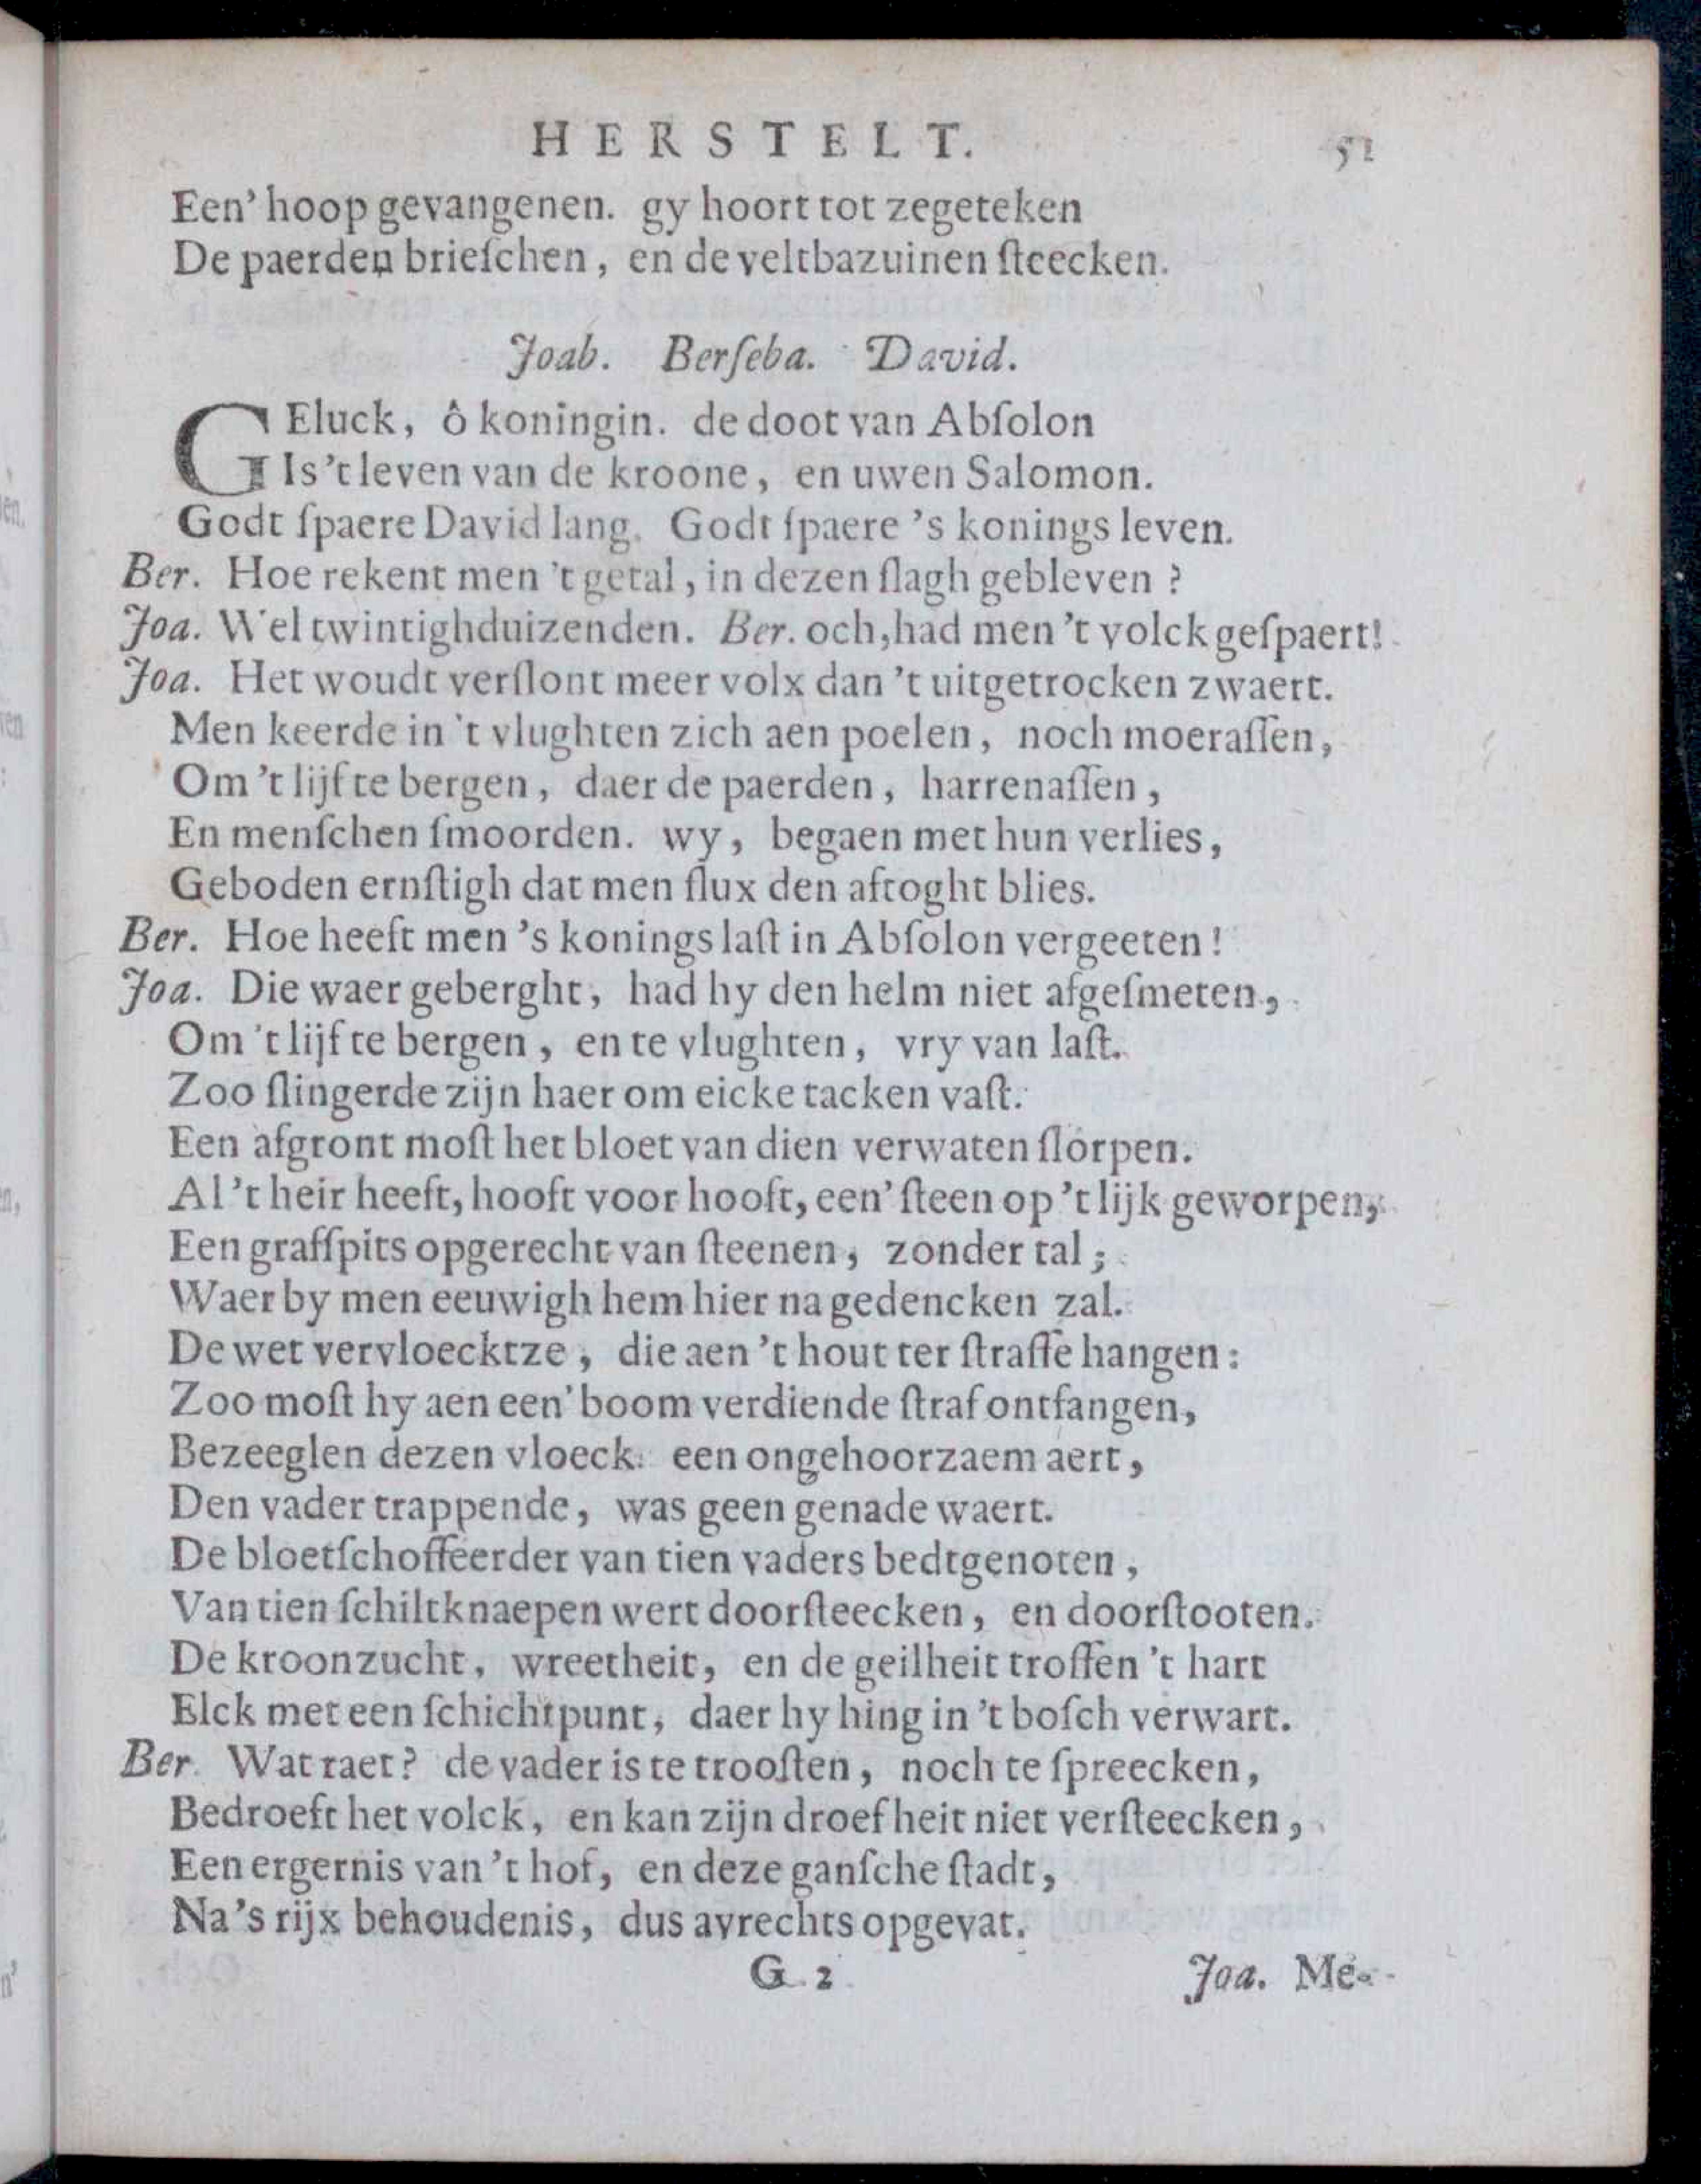 HERSTELT. 51
Een' hoop gevangenen. gy hoort tot zegeteken
De paerden brieſchen, en de veltbazuinen ſteecken.
Joab. Berſeba. David.
GEluck, ô koningin. de doot van Abſolon
Is 't leven van de kroone, en uwen Salomon.
Godt ſpaere David lang. Godt ſpaere 's konings leven.
Ber. Hoe rekent men 't getal, in dezen ſlagh gebleven?
Joa. Wel twintighduizenden. Ber. och, had men 't volck geſpaert!
Joa. Het woudt verſlont meer volx dan 't uitgetrocken zwaert.
Men keerde in 't vlughten zich aen poelen, noch moeraſſen,
Om 't lijf te bergen, daer de paerden, harrenaſſen,
En menſchen ſmoorden. wy, begaen met hun verlies,
Geboden ernſtigh dat men flux den aftoght blies.
Ber. Hoe heeft men 's konings laſt in Abſolon vergeeten!
Joa. Die waer geberght, had hy den helm niet afgeſmeten,
Om 't lijf te bergen, en te vlughten, vry van laſt.
Zoo ſlingerde zijn haer om eicke tacken vaſt.
Een afgront moſt het bloet van dien verwaten ſlorpen.
Al 't heir heeft, hooft voor hooft, een' ſteen op 't lijk geworpen,
Een graffſpits opgerecht van ſteenen, zonder tal;
Waer by men eeuwigh hem hier na gedencken zal.
De wet vervloecktze, die aen 't hout ter ſtraffe hangen:
Zoo moſt hy aen een' boom verdiende ſtraf ontfangen,
Bezeeglen dezen vloeck. een ongehoorzaem aert,
Den vader trappende, was geen genade waert.
De bloetſchoffeerder van tien vaders bedtgenoten,
Van tien ſchiltknaepen wert doorſteecken, en doorſtooten.
De kroonzucht, wreetheit, en de geilheit troffen 't hart
Elck met een ſchichtpunt, daer hy hing in 't boſch verwart.
Ber. Wat raet? de vader is te trooſten, noch te ſpreecken,
Bedroeft het volck, en kan zijn droefheit niet verſteecken,
Een ergernis van 't hof, en deze ganſche ſtadt,
Na 's rijx behoudenis, dus avrechts opgevat.
G 2 Joa. Me-